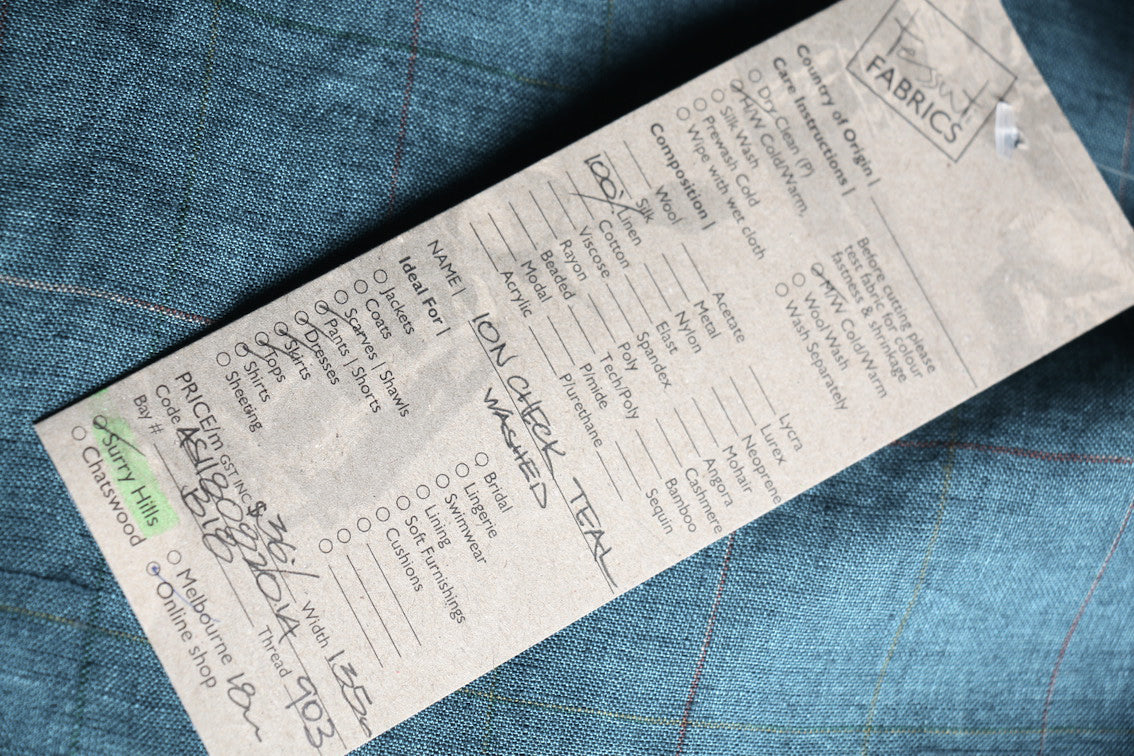 Tessuti
FABRICS
Country of Origin |
Care Instructions |
Before cutting please
test fabric for colour
fastness & shrinkage
Dry Clean (P)
H/W Cold/Warm
Silk Wash
Prewash Cold
Wipe with wet cloth
M/W Cold/Warm
Wool Wash
Wash Separately
Composition |
Silk
Wool
100% Linen
Cotton
Viscose
Rayon
Beaded
Modal
Acrylic
Acetate
Metal
Nylon
Elast
Spandex
Poly
Tech/Poly
P/mide
P/urethane
Lycra
Lurex
Neoprene
Mohair
Angora
Cashmere
Bamboo
Sequin
NAME | ION CHECK TEAL
WASHED
Ideal For |
Jackets
Coats
Scarves | Shawls
Pants | Shorts
Dresses
Skirts
Tops
Shirts
Sheeting
Bridal
Lingerie
Swimwear
Lining
Soft Furnishings
Cushions
PRICE/m GST INC $36/ Width 135c
Code Thread 903
Bay # B18
Surry Hills
Chatswood
Melbourne
Online shop
18m